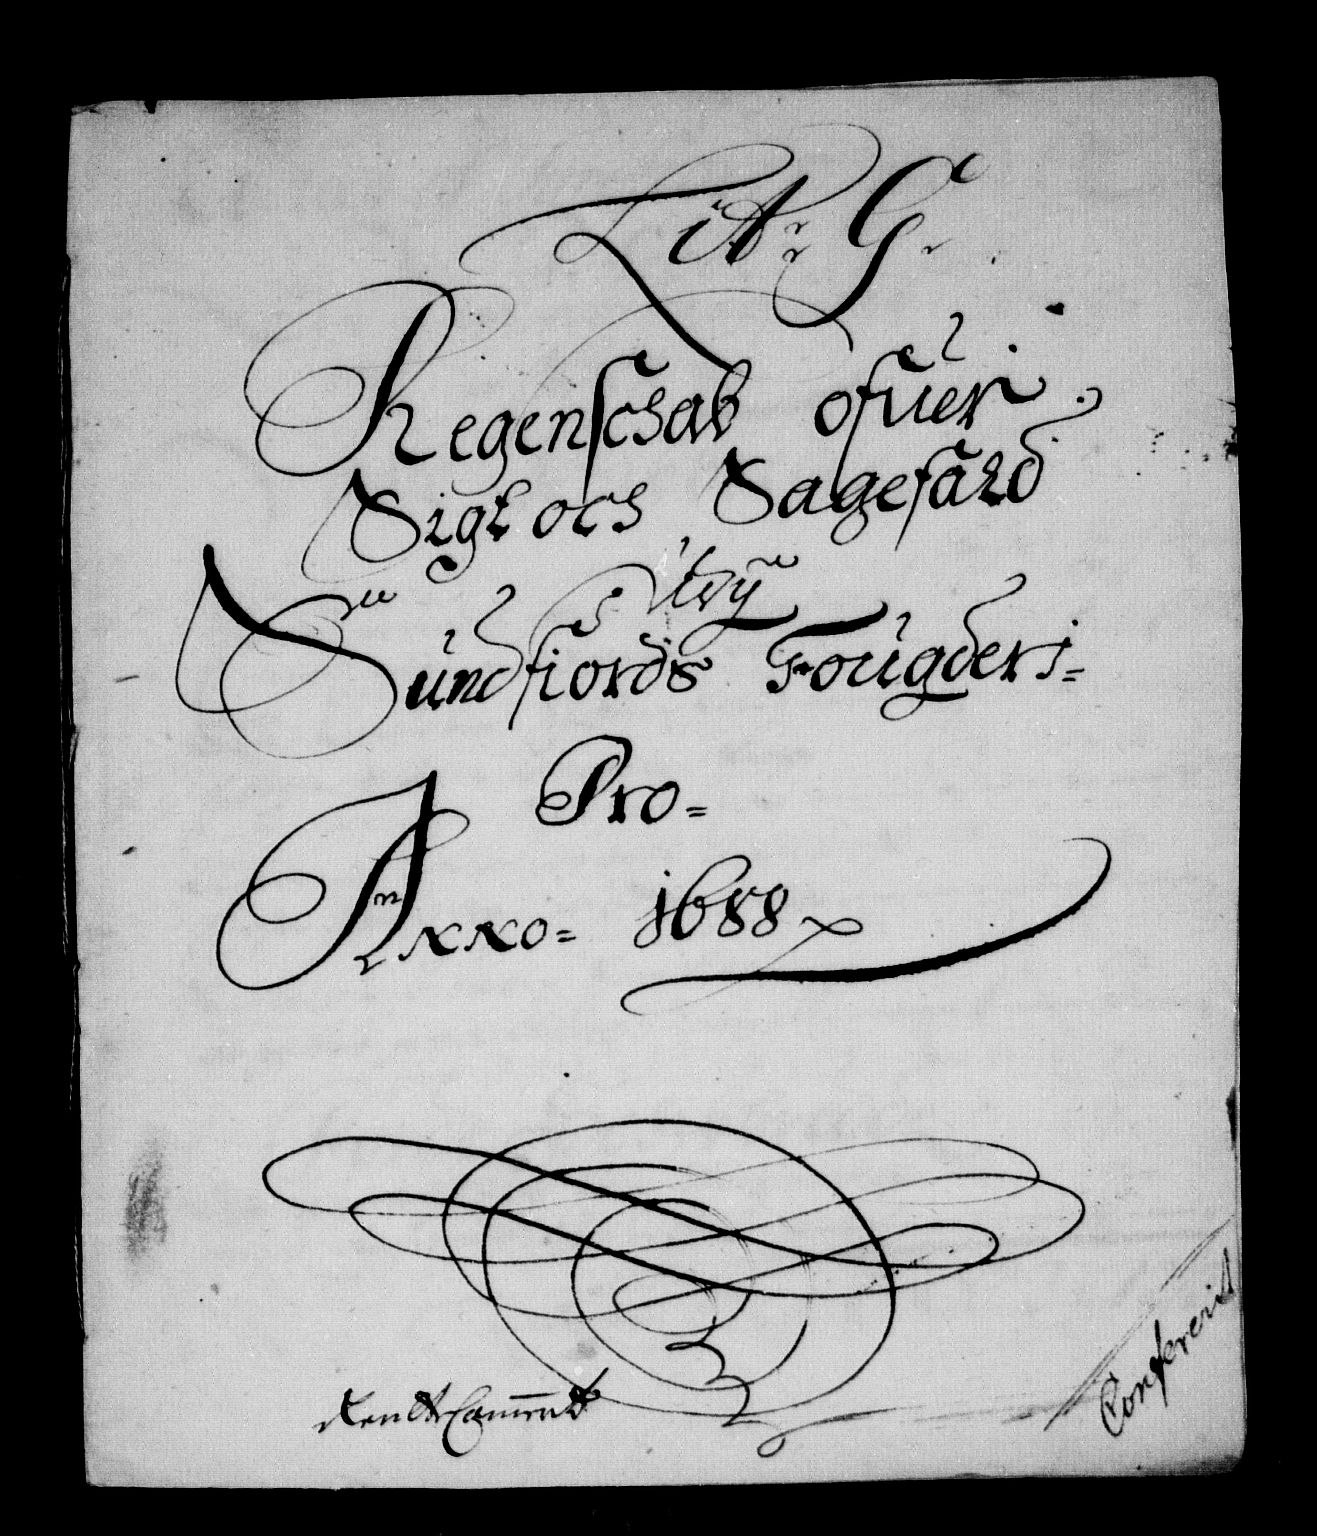 Litr: G.
Regenschab ofuer
Sigt och Sagefald
udj
Sundfiords Fougderi=
Pro=
Anno= 1688
Rente Cammer
Confererit